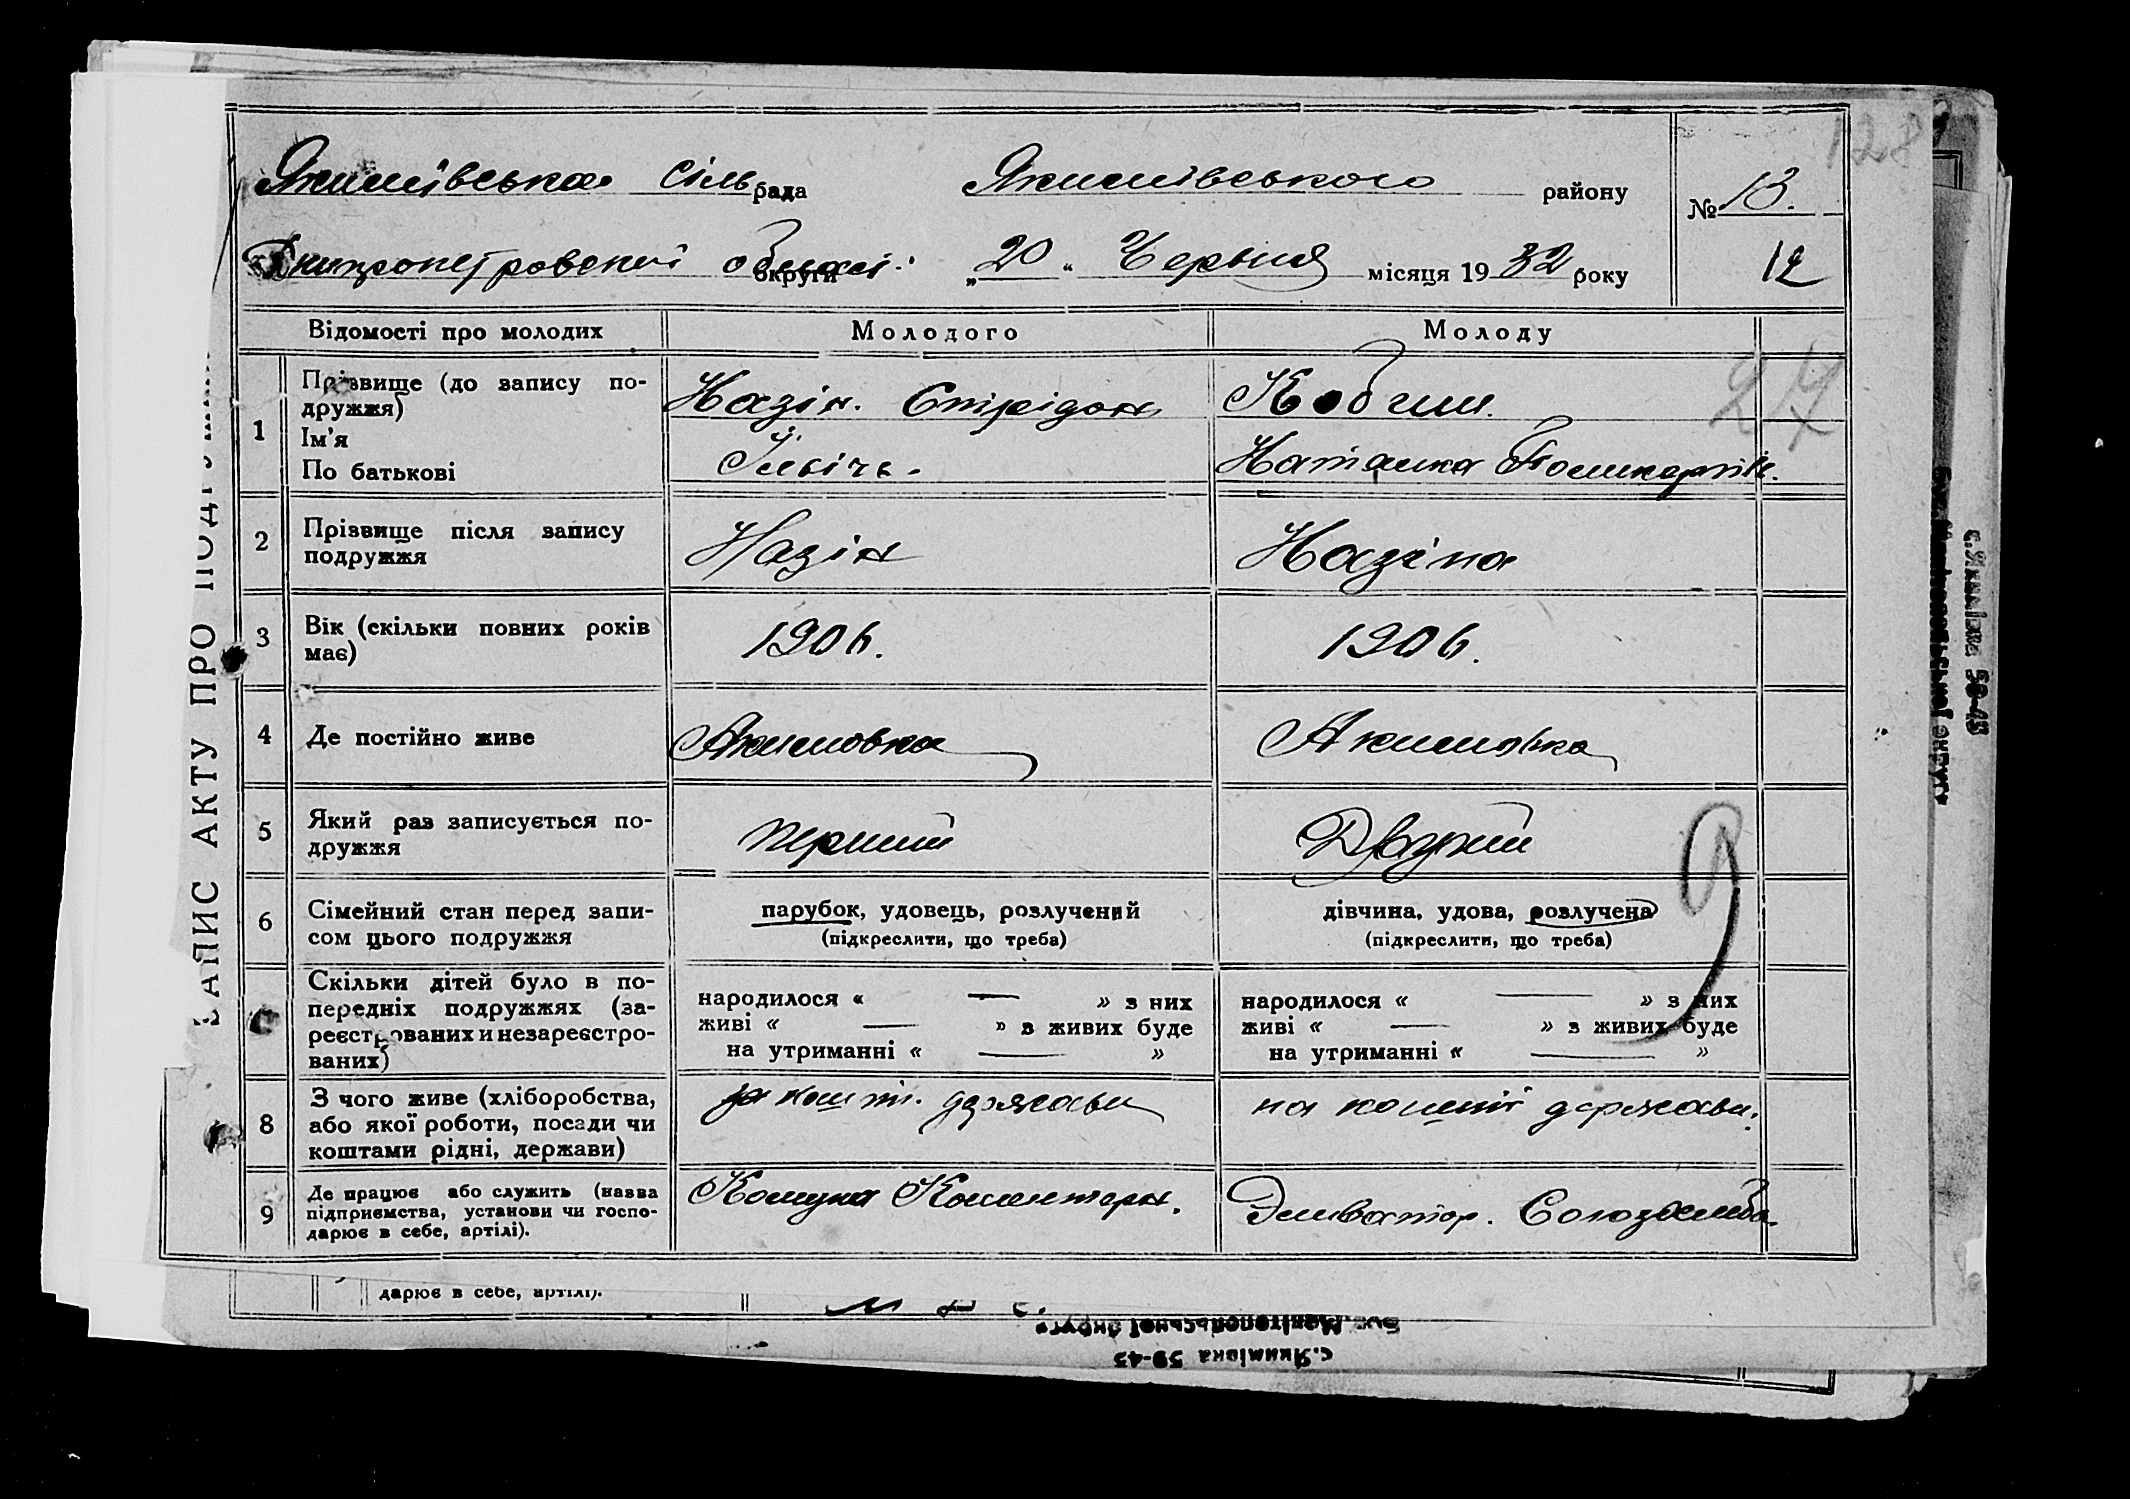 128
Якимівська сільрада Якимівського району
№ 13.
Дніпропетровскої області округи „20“ Червня місяця 1932 року
12
Відомості про молодих
Молодого
Молоду
27
1
Прізвище (до запису по-
дружжя)
Ім'я
По батькові
Назін. Спірідон
Ількічь.
Кобзин.
Наталка Поликарпів.
2
Прізвище після запису
подружжя
Назін
Назіна
3
Вік (скільки повних років
має)
1906.
1906.
4
Де постійно живе
Акимовка
Акимовка
5
Який раз записується по-
дружжя
перший
Другий
9
6
Сімейний стан перед запи-
сом цього подружжя
парубок, удовець, розлучений
(підкреслити, що треба)
дівчина, удова, розлучена
(підкреслити, що треба)
Скільки дітей було в по-
передніх подружжях (за-
реєстрованих и незареєстро-
ваних)
народилося « — » з них
живі « — » з живих буде
на утриманні « — »
народилося « — » з них
живі « — » з живих буде
на утриманні « — »
8
З чого живе (хліборобства,
або якої роботи, посади чи
коштами рідні, держави)
за кошт. держави
на кошти держави.
9
Де працює або служить (назва
підприємства, установи чи госпо-
дарює в себе, артілі).
Комуна Коминтерн.
Элиіватор. Союзхлиба.
ЗАПИС АКТУ ПРО ПОДРУЖЖЯ
дарює в себе, артілі).
Мелітопольської округи
с.Якимівка 59-43
с.Якимівка 59-43
Мелітопольської округи